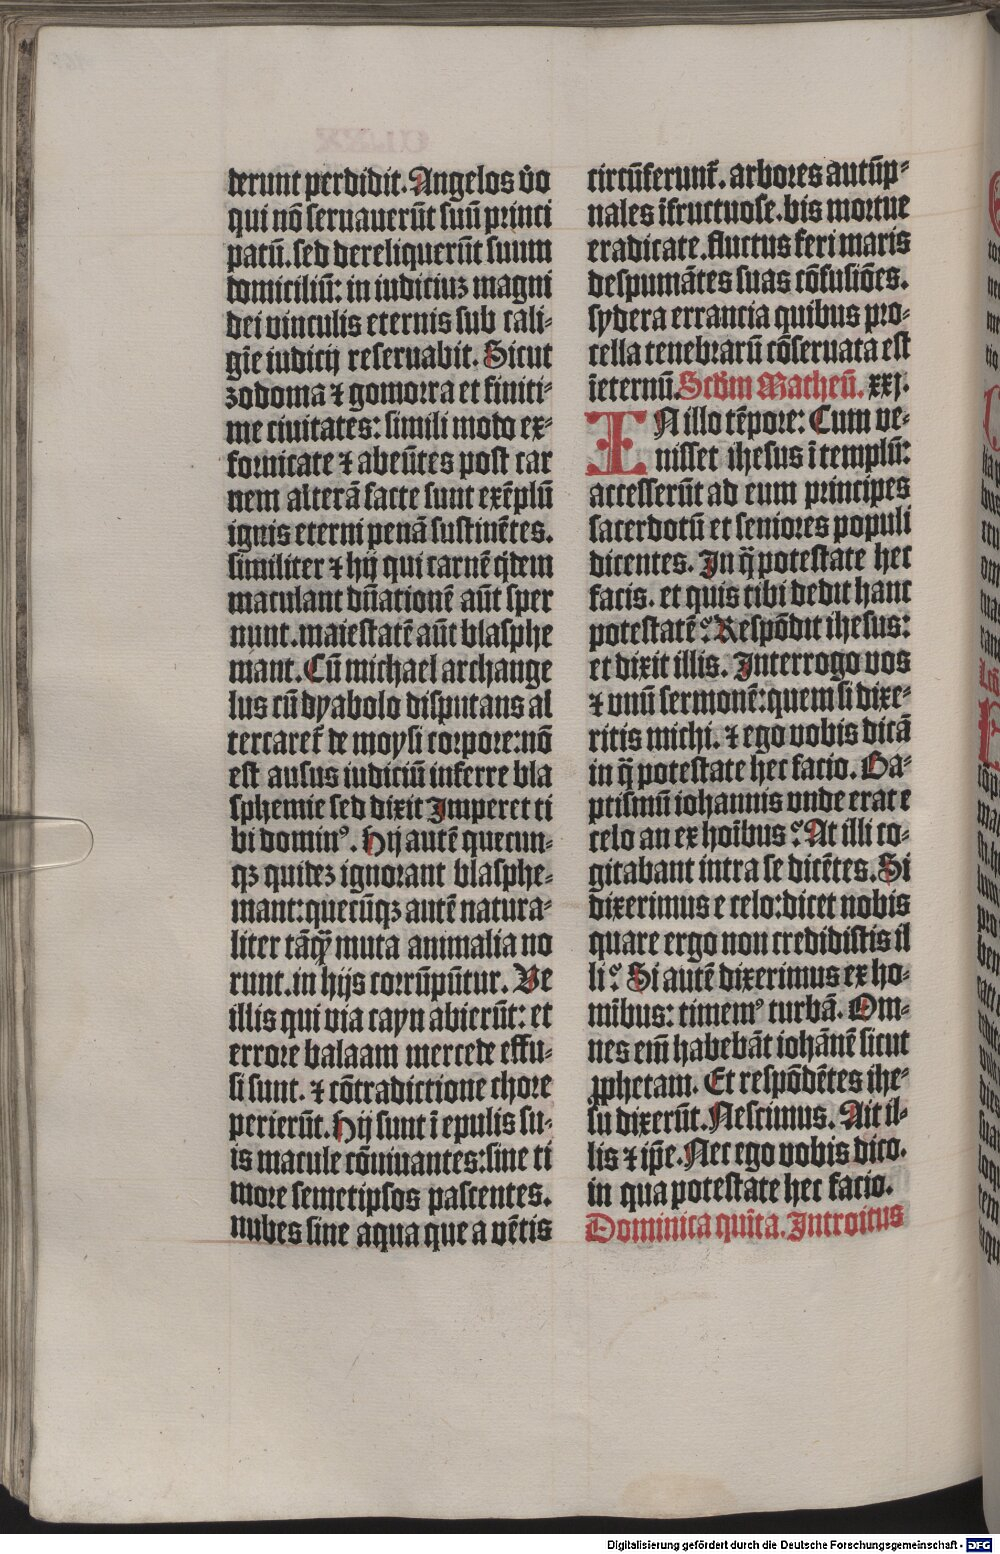 derunt perdidit. Angelos v̄o
qui nō seruauerūt suū princi
patū. sed dereliquerūt suum
domiciliū: in iudiciuꝫ magni
dei vinculis eternis sub cali-
gīe iudicij reseruabit. Sicut
zodoma ⁊ gomorra et finiti-
me ciuitates: simili modo ex-
fornicate ⁊ abeūtes post car
nem alterā facte sunt exēplū
ignis eterni penā sustinētes.
similiter ⁊ hij qui carnē q̇dem
maculant dn̄ationē aūt sper
nunt. maiestatē aūt blasphe
mant. Cū michael archange
lus cū dyabolo disputans al
tercaret̄ de moysi corpore: nō
est ausus iudiciū inferre bla
sphemie sed dixit Imperet ti
bi dominꝰ. Hij autē quecun-
qꝫ quideꝫ ignorant blasphe-
mant: quecūqꝫ autē natura-
liter tāqꝫ̄ muta animalia no
runt. in hijs corrūpūtur. Ve
illis qui via cayn abierūt: et
errore balaam mercede effu-
si sunt. ⁊ cōtradictione chore
perierūt. Hij sunt ī epulis su-
is macule cōuiuantes: sine ti
more semetipsos pascentes.
nubes sine aqua que a vētis
circūferunt̄. arbores autūp-
nales īfructuose. bis mortue
eradicate. fluctus feri maris
despumātes suas cōfusiōes.
sydera errancia quibus pro-
cella tenebrarū cōseruata est
īeternū. Scd̄m Matheū. xxj.
IN illo tēpore: Cum ve-
nisset ihesus ī templū:
accesserūt ad eum principes
sacerdotū et seniores populi
dicentes. In q̄ potestate hec
facis. et quis tibi dedit hanc
potestatē? Respōdit ihesus:
et dixit illis. Interrogo vos
⁊ vnū sermonē: quem si dixe-
ritis michi. ⁊ ego vobis dicā
in q̄ potestate hec facio. Ba-
ptismū iohannis vnde erat e
celo an ex hoībus? At illi co-
gitabant intra se dicētes. Si
dixerimus e celo: dicet nobis
quare ergo non credidistis il
li? Si autē dixerimus ex ho-
mībus: timemꝰ turbā. Om-
nes em̄ habebāt iohānē sicut
ꝓphetam. Et respōdētes ihe-
su dixerūt. Nescimus. Ait il-
lis ⁊ ip̄e. Nec ego vobis dico.
in qua potestate hec facio.
Dominica quīta. Introitus
Digitalisierung gefördert durch die Deutsche Forschungsgemeinschaft - DFG